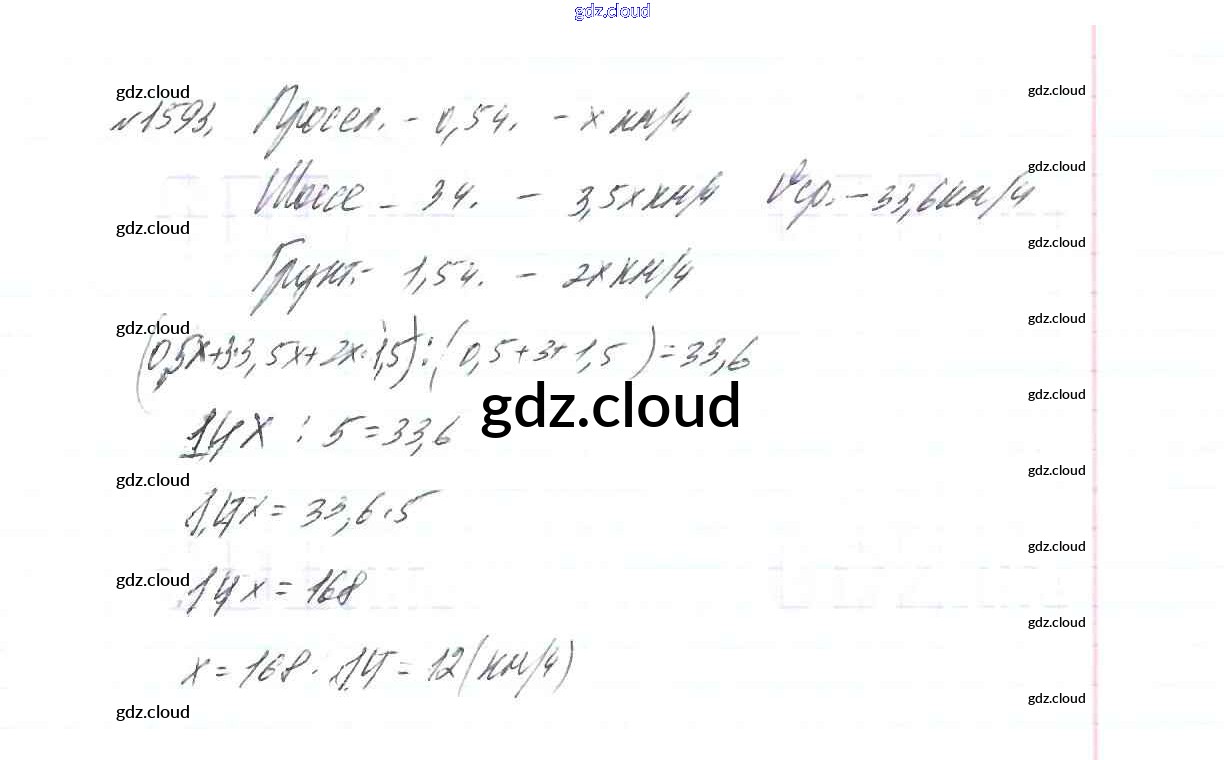 gdz.cloud
gdz.cloud
gdz.cloud
№1593, Просел. - 0,5ч. - x км/ч
gdz.cloud
Шоссе - 3ч. - 3,5x км/ч Vср. - 33,6км/ч
gdz.cloud
gdz.cloud
Грунт. - 1,5ч. - 2x км/ч
gdz.cloud
gdz.cloud
(0,5x+3·3,5x+2x·1,5):(0,5+3+1,5)=33,6
gdz.cloud
gdz.cloud
14x : 5=33,6
gdz.cloud
gdz.cloud
14x= 33,6·5
gdz.cloud
gdz.cloud
14x = 168
gdz.cloud
x = 168 : 14 = 12(км/ч)
gdz.cloud
gdz.cloud